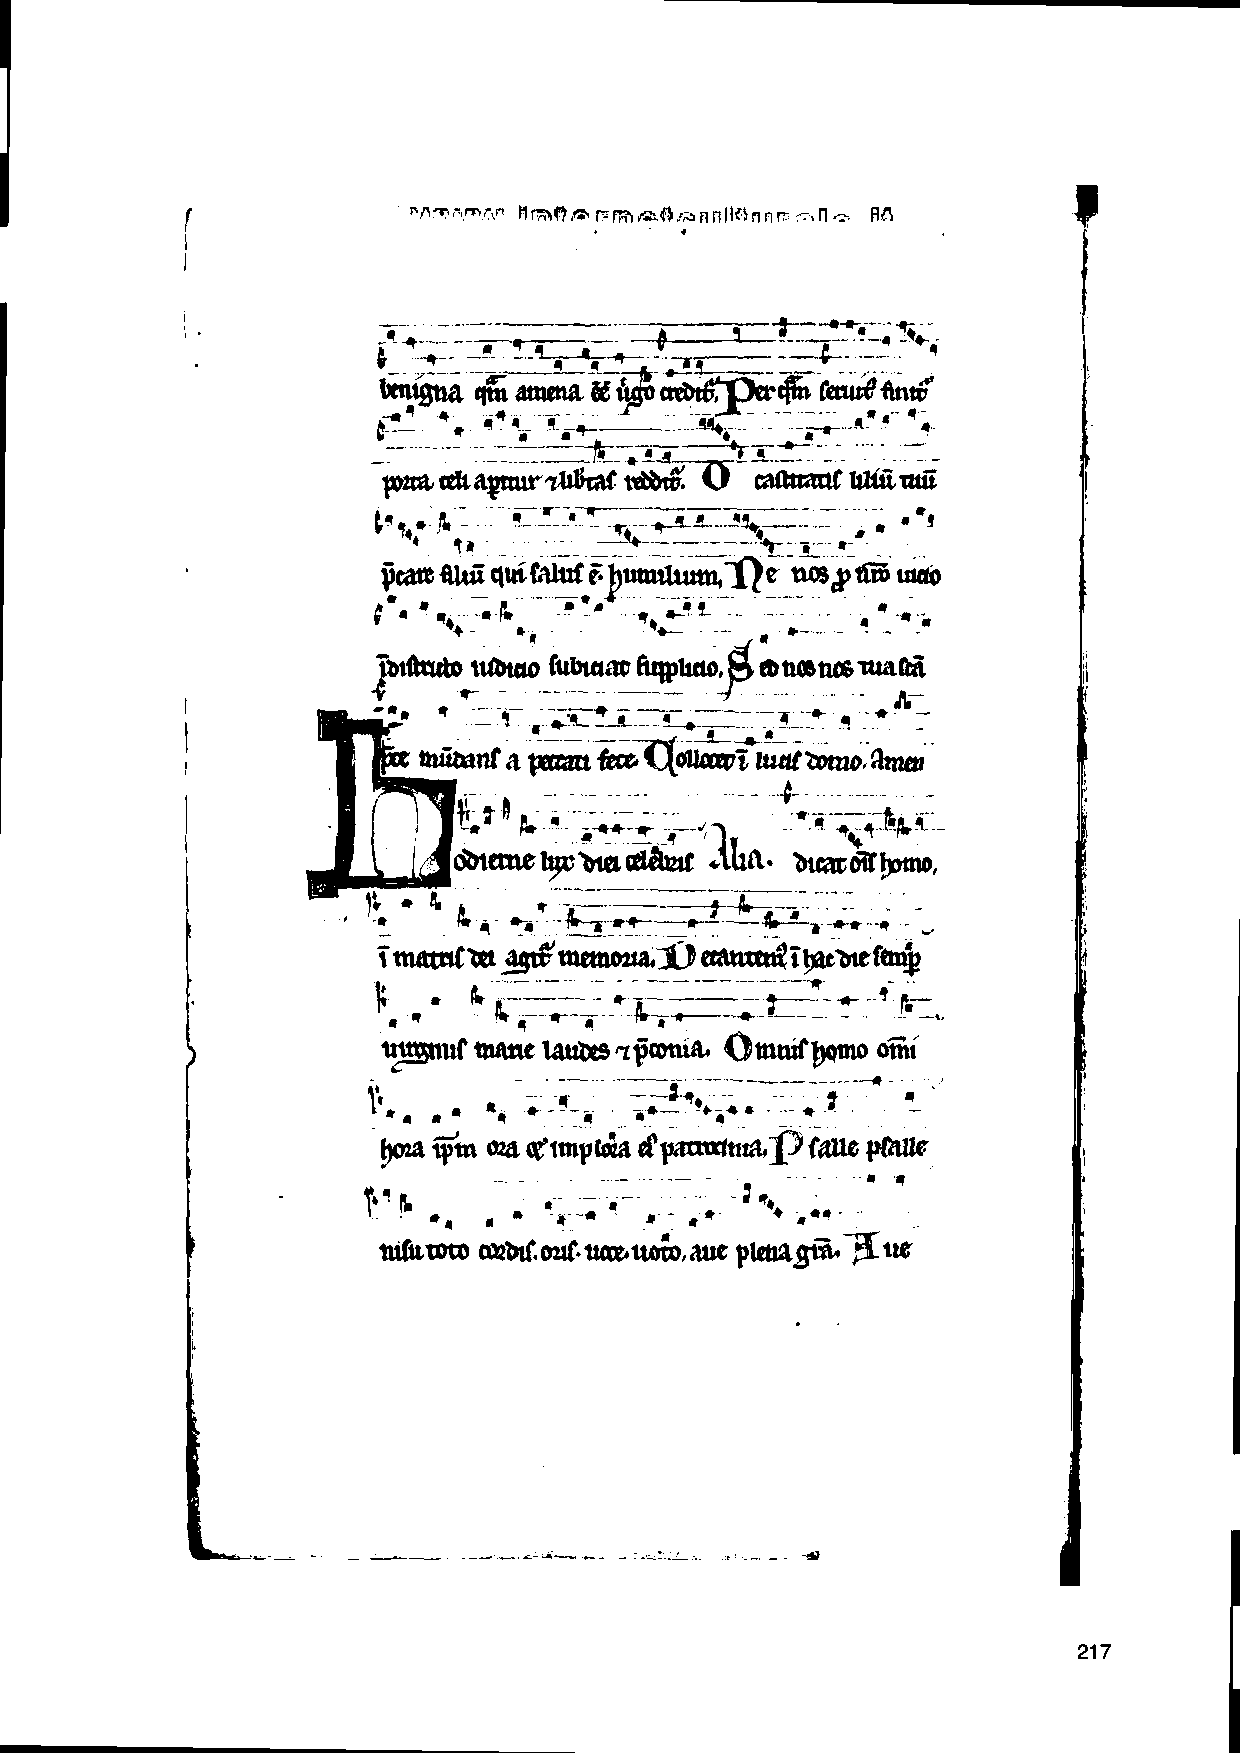 www.internetculturale.it
benigna qm̄ amena ēē ỽgo credit᷑, Per qm̄ seruit᷑ finit᷑
porta celi aꝑitur ⁊ libtas reddit᷑. O castitatis liliū tuū
p̄care filiū qui salus ē humilium, Ne nos ꝓ nr̄o uicio
ī districto iudicio subiciat supplicio, Sed nos nos tua sc̄a
p̄ce mūdans a peccati fece. Collocet ī lucis domo. Amen
Hodierne lux diei celebris Alia. dicat oīs homo,
ī matris dei agit᷑ memoria, Decantem᷒ ī hac die semꝑ
uirginis marie laudes ⁊ p̄conia. Omnis homo om̄i
hora ip̄m ora et implora ei᷒ patrocinia, Psalle psalle
nisu toto cordis. oris. uoce. uoto, aue plena gr̄a. Aue
217